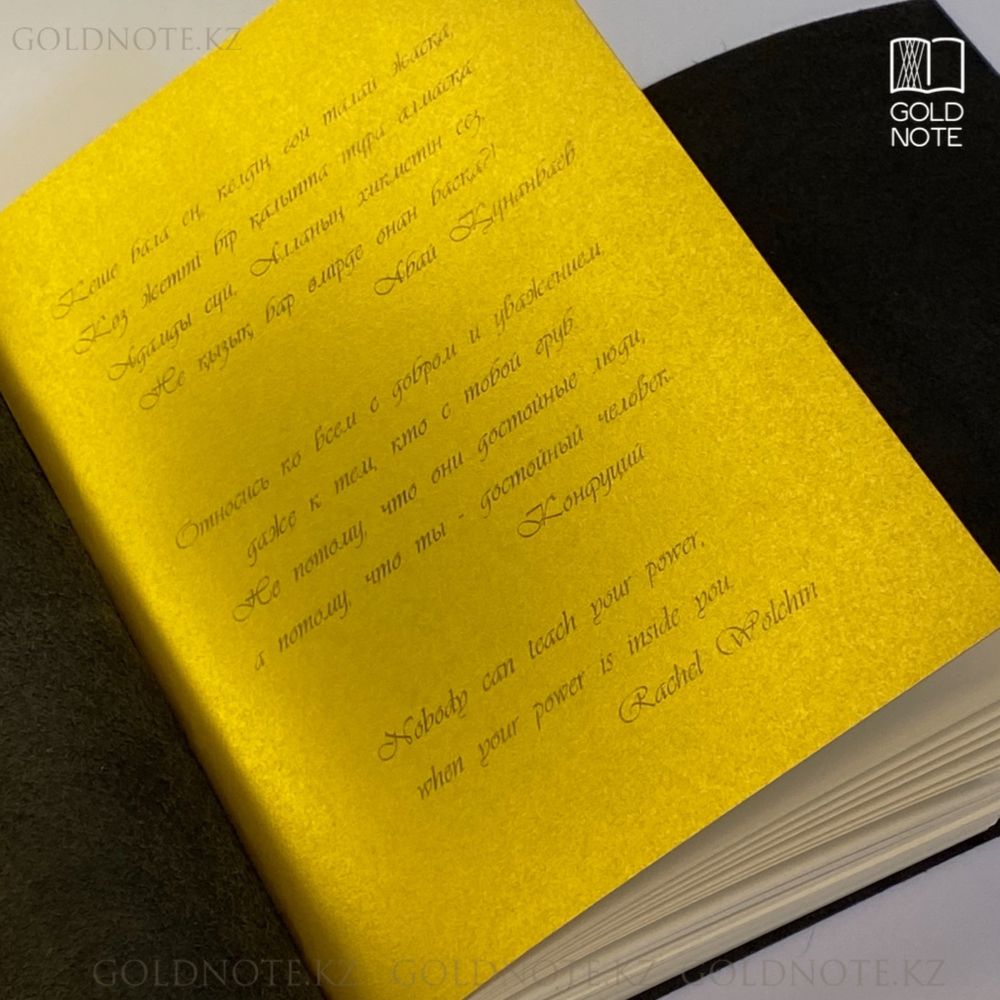 GOLDNOTE.KZ
GOLD
NOTE
Кеше бала ең, келдің ғой талай жасқа,
Көз жетті бір қалыпта тұра алмасқа.
Адамды сүй, Алланың хикметін сез,
Не қызық бар өмірде онан басқа?!
Абай Құнанбаев
Относись ко всем с добром и уважением,
даже к тем, кто с тобой груб.
Не потому, что они достойные люди,
а потому, что ты - достойный человек.
Конфуций
Nobody can teach your power,
when your power is inside you.
Rachel Wolchin
GOLDNOTE.KZ GOLDNOTE.KZ GOLDNOTE.KZ